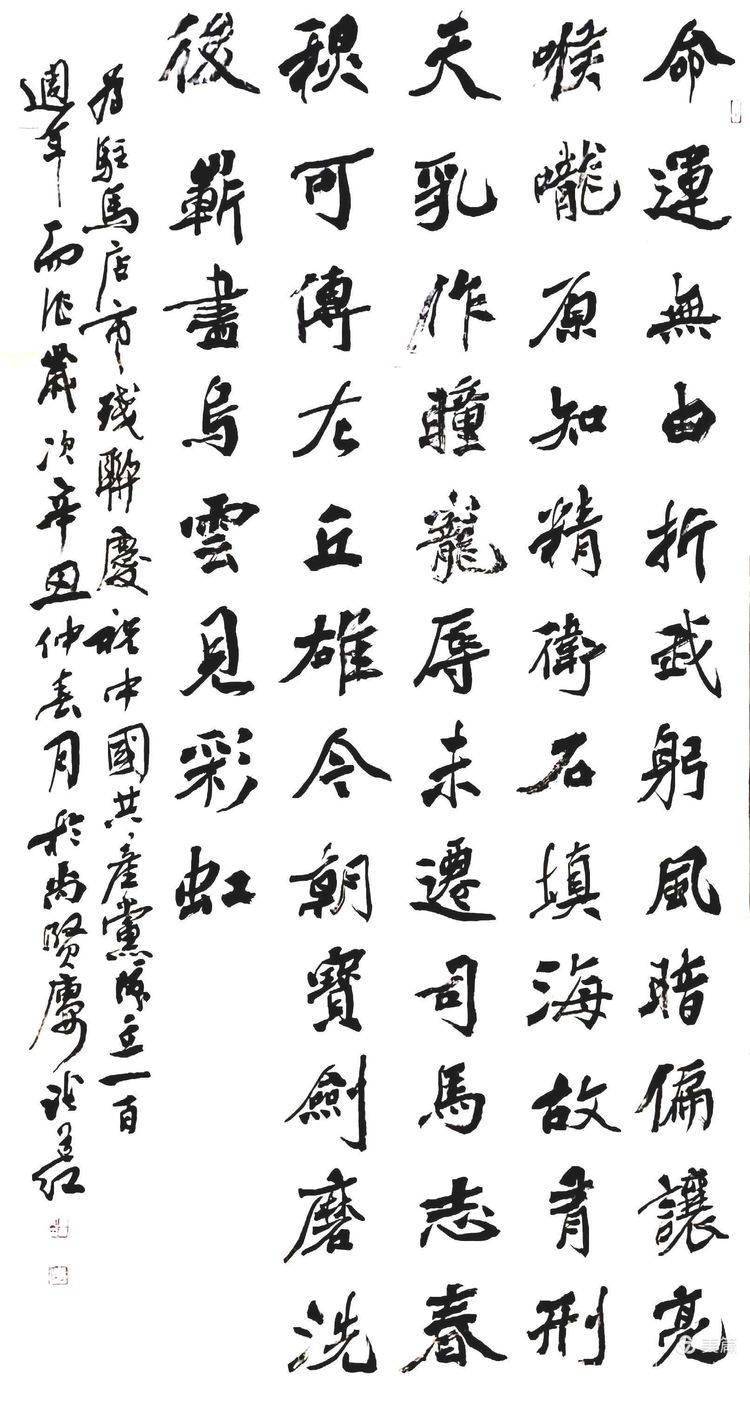 命運無由折我躬風暗偏讓亮
喉嚨原知精衛石填海故有刑
天乳作瞳寵辱未遷司馬志春
秋可傳左丘雄今朝寶劍磨洗
後嶄盡烏雲見彩虹
為駐馬店市殘聯慶祝中國共產黨成立一百
週年而作歲次辛丑仲春月於尚賢廬
美篇